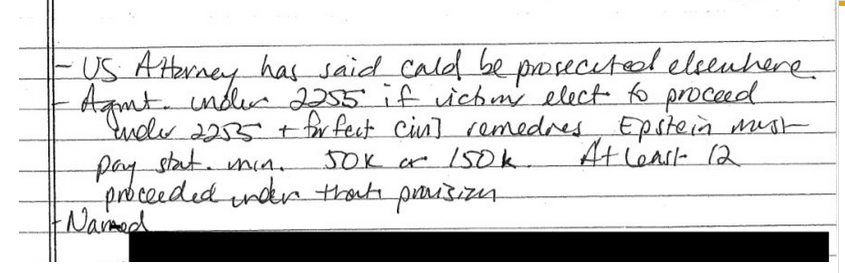 - US Attorney has said cald be prosecuted elsewhere.
- Agmt. under 2255 if victims elect to proceed
under 2255 + forfeit civil remedies, Epstein must
pay stat. min. 50K or 150k. At least 12
proceeded under that provision
- Named